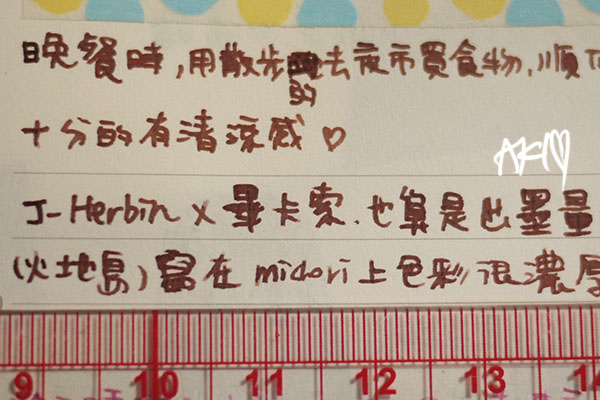 晚餐時,用散步的去夜市買食物,順
十分的有清涼感♡
J-Herbin x 畢卡索.也算是出墨量
(火地島)寫在midori上色彩很濃厚
9 10 11 12 13 14